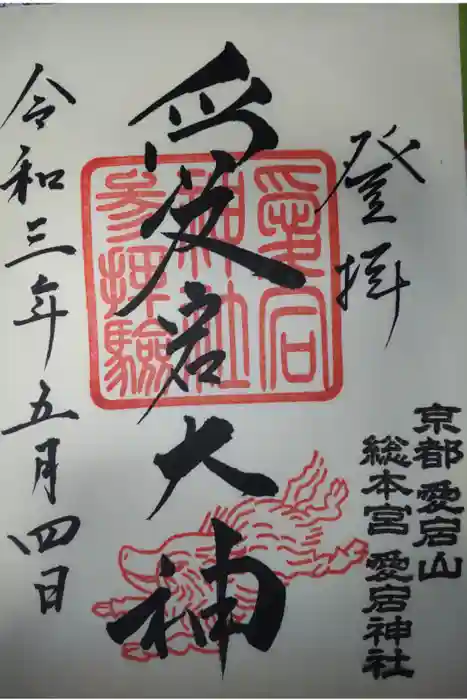 登拝
京都愛宕山
総本宮 愛宕神社
愛宕大神
愛宕
神社
参拝験
令和三年五月四日